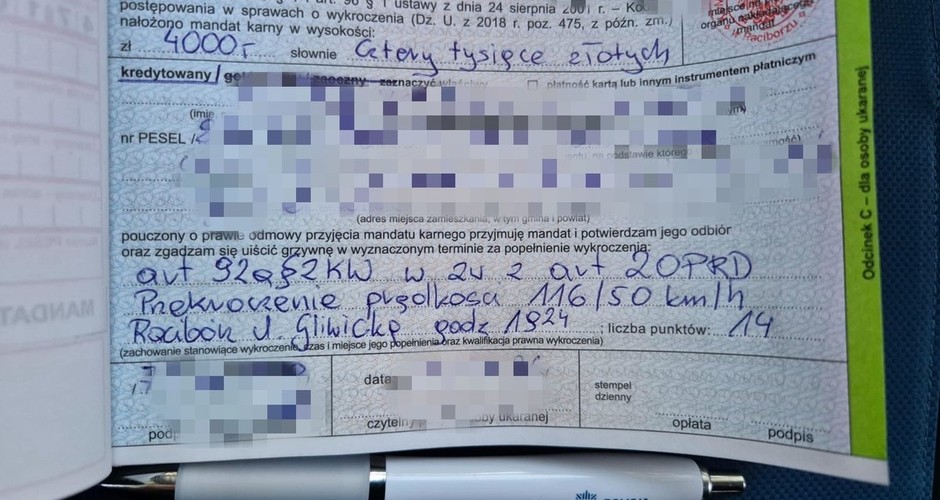 postępowania w sprawach o wykroczenia (Dz. U. z 2018 r. poz. 475, z późn. zm.)
nałożono mandat karny w wysokości:
miejsce na
organu
mandat
Raciborzu
zł 4000,- słownie Cztery tysiące złotych
kredytowany / zaoczny zaznaczyć płatność kartą lub innym instrumentem płatniczym
(imię
nr PESEL /
na podstawie którego
(adres miejsca zamieszkania, w tym gmina i powiat)
pouczony o prawie odmowy przyjęcia mandatu karnego przyjmuję mandat i potwierdzam jego odbiór
oraz zgadzam się uiścić grzywnę w wyznaczonym terminie za popełnienie wykroczenia:
art 92a§2KW w zw z art 20PRD
Przekroczenie prędkości 116/50 km/h
Racibórz ul. Gliwicka godz 1924 ; liczba punktów: 14
(zachowanie stanowiące wykroczenie, czas i miejsce jego popełnienia oraz kwalifikacja prawna wykroczenia)
data
stempel
dzienny
czytelny ukaranej
opłata podpis
Odcinek C – dla osoby ukaranej